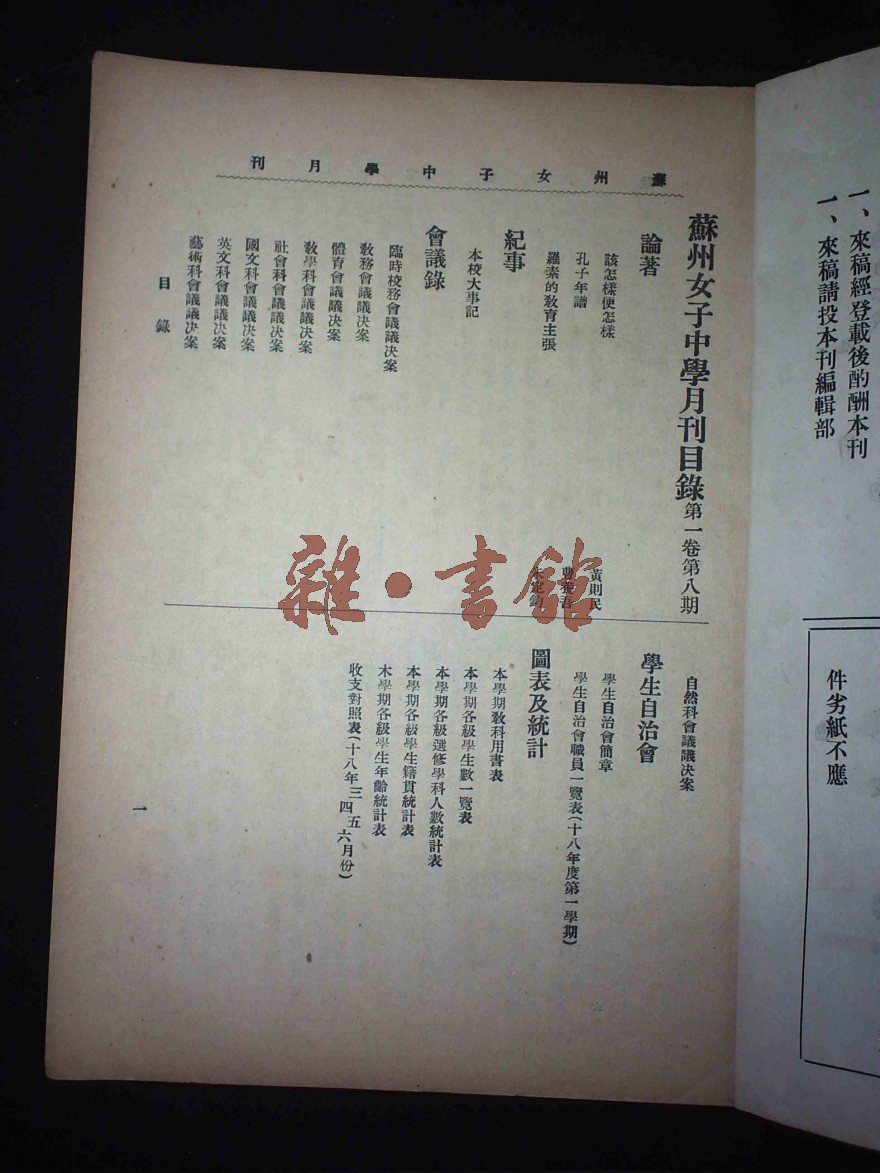 一、來稿經登載後酌酬本刊
一、來稿請投本刊編輯部
件劣紙不應
蘇州女子中學月刊
蘇州女子中學月刊目錄 第一卷第八期
論著
該怎樣便怎樣 黃則民
孔子年譜
羅素的教育主張 朱定鈞
紀事
本校大事記
會議錄
臨時校務會議議決案
教務會議議決案
體育會議議決案
教學科會議議決案
社會科會議議決案
國文科會議議決案
英文科會議議決案
藝術科會議議決案
自然科會議議決案
學生自治會
學生自治會簡章
學生自治會職員一覽表(十八年度第一學期)
圖表及統計
本學期教科用書表
本學期各級學生數一覽表
本學期各級選修學科人數統計表
本學期各級學生籍貫統計表
木學期各級學生年齡統計表
收支對照表(十八年三四五六月份)
目錄
一
雜·書館